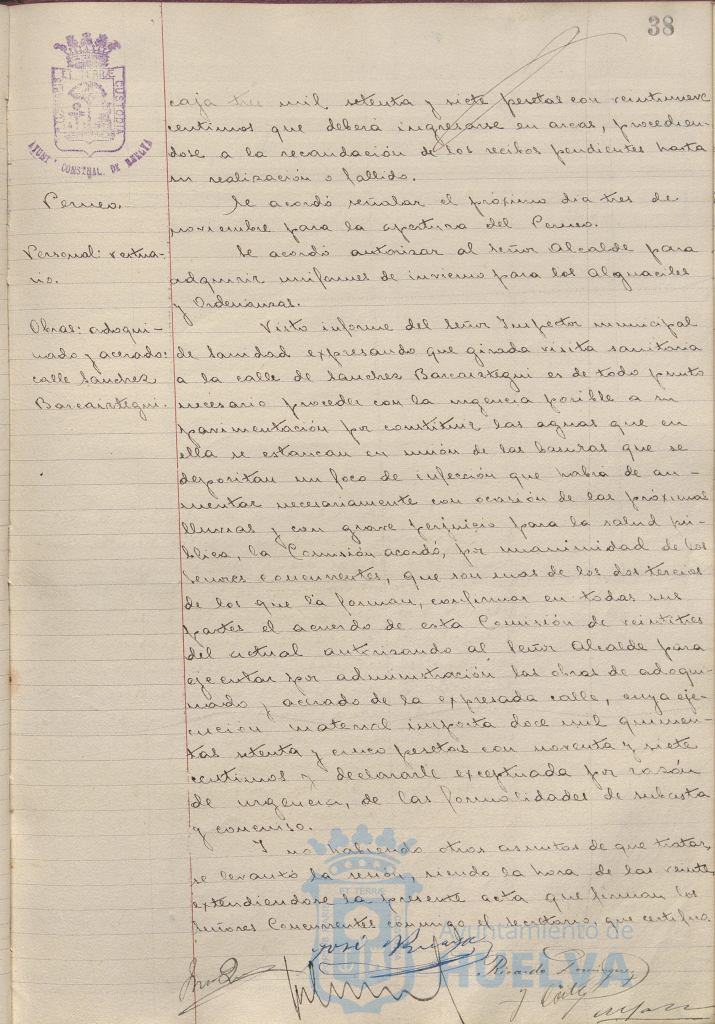 38
ET TERRÆ
CUSTODIA
AYUNT. CONSTNAL. DE HUELVA
caja tres mil setenta y siete pesetas con veintinueve
centimos que deberá ingresarse en arcas, procedien-
dose a la recaudación de los recibos pendientes hasta
su realización o fallido.
Perneo.
Se acordó señalar el próximo dia tres de
noviembre para la apertura del Perneo.
Personal: vestua-
rio.
Se acordó autorizar al Señor Alcalde para
adquirir uniformes de invierno para los Alguaciles
y Ordenanzas.
Obras: adoqui-
nado y acerado:
calle Sánchez
Barcaiztegui.
Visto informe del Señor Inspector municipal
de Sanidad expresando que girada visita sanitaria
a la calle de Sanchez Barcaiztegui es de todo punto
necesario proceder con la urgencia posible a su
pavimentación por constituir las aguas que en
ella se estancan en unión de las basuras que se
depositan un foco de infección que habrá de au-
mentar necesariamente con ocasión de las próximas
lluvias y con grave perjuicio para la salud pú-
blica, la Comisión acordó, por unanimidad de los
Señores concurrentes, que son mas de los dos tercios
de los que la forman, confirmar en todas sus
partes el acuerdo de esta Comisión de veintitres
del actual autorizando al Señor Alcalde para
ejecutar por administración las obras de adoqui-
nado y acerado de la expresada calle, cuya eje-
cución material importa doce mil quinien-
tas setenta y cinco pesetas con noventa y siete
centimos y declararle exceptuada por razón
de urgencia, de las formalidades de subasta
y concurso.
Y no habiendo otros asuntos de que tratar,
se levantó la sesión, siendo la hora de las veinte
extendiendose la presente acta que firman los
Señores Concurrentes conmigo el secretario, que certifico.
José
Ricardo Dominguez
y
ET TERRÆ
Ayuntamiento de
HUELVA